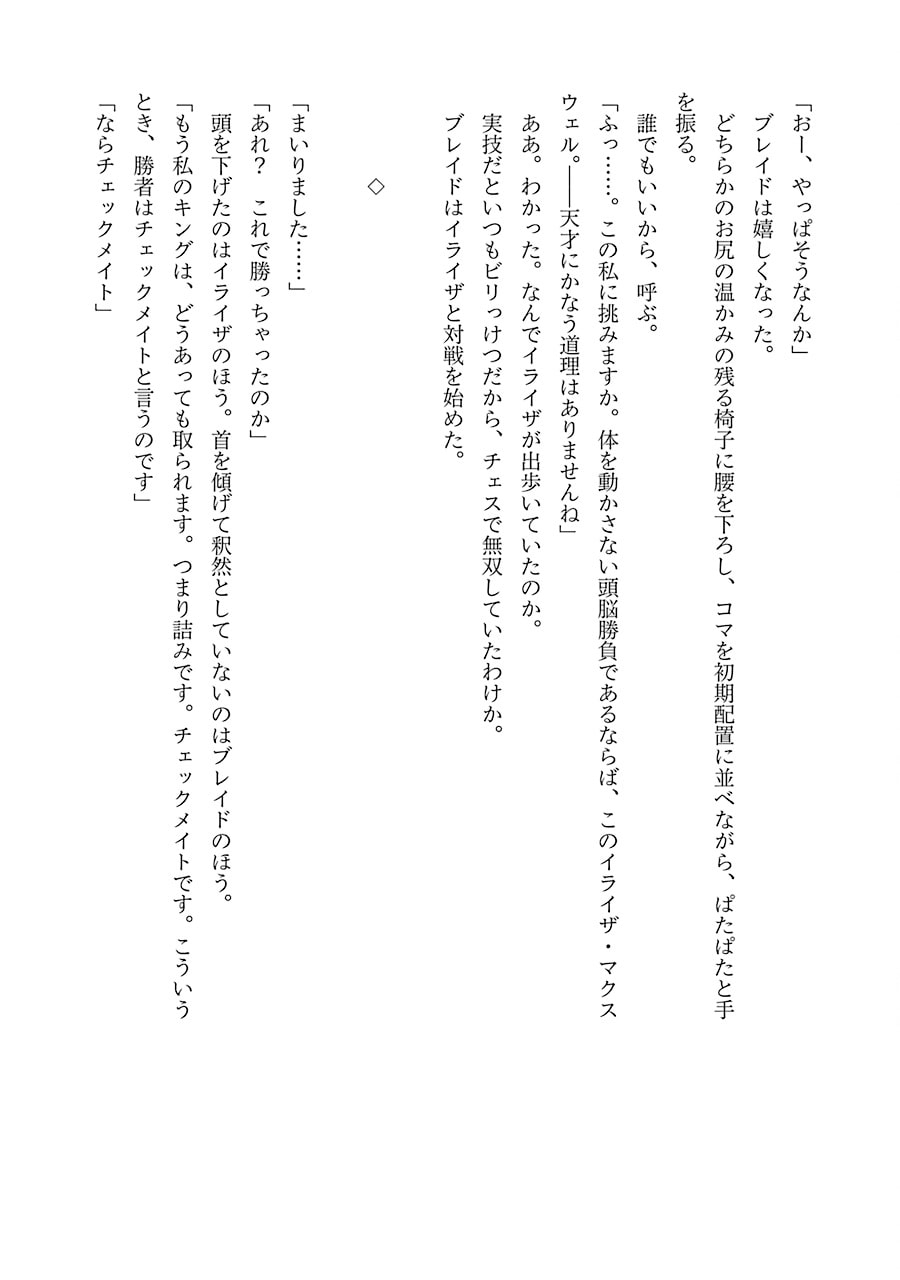 「おー、やっぱそうなんか」
　ブレイドは嬉しくなった。
　どちらかのお尻の温かみの残る椅子に腰を下ろし、コマを初期配置に並べながら、ぱたぱたと手
を振る。
　誰でもいいから、呼ぶ。
「ふっ……。この私に挑みますか。体を動かさない頭脳勝負であるならば、このイライザ・マクス
ウェル。――天才にかなう道理はありませんね」
　ああ。わかった。なんでイライザが出歩いていたのか。
　実技だといつもビリっけつだから、チェスで無双していたわけか。
　ブレイドはイライザと対戦を始めた。
◇
「まいりました……」
「あれ？　これで勝っちゃったのか」
　頭を下げたのはイライザのほう。首を傾げて釈然としていないのはブレイドのほう。
「もう私のキングは、どうあっても取られます。つまり詰みです。チェックメイトです。こういう
とき、勝者はチェックメイトと言うのです」
「ならチェックメイト」